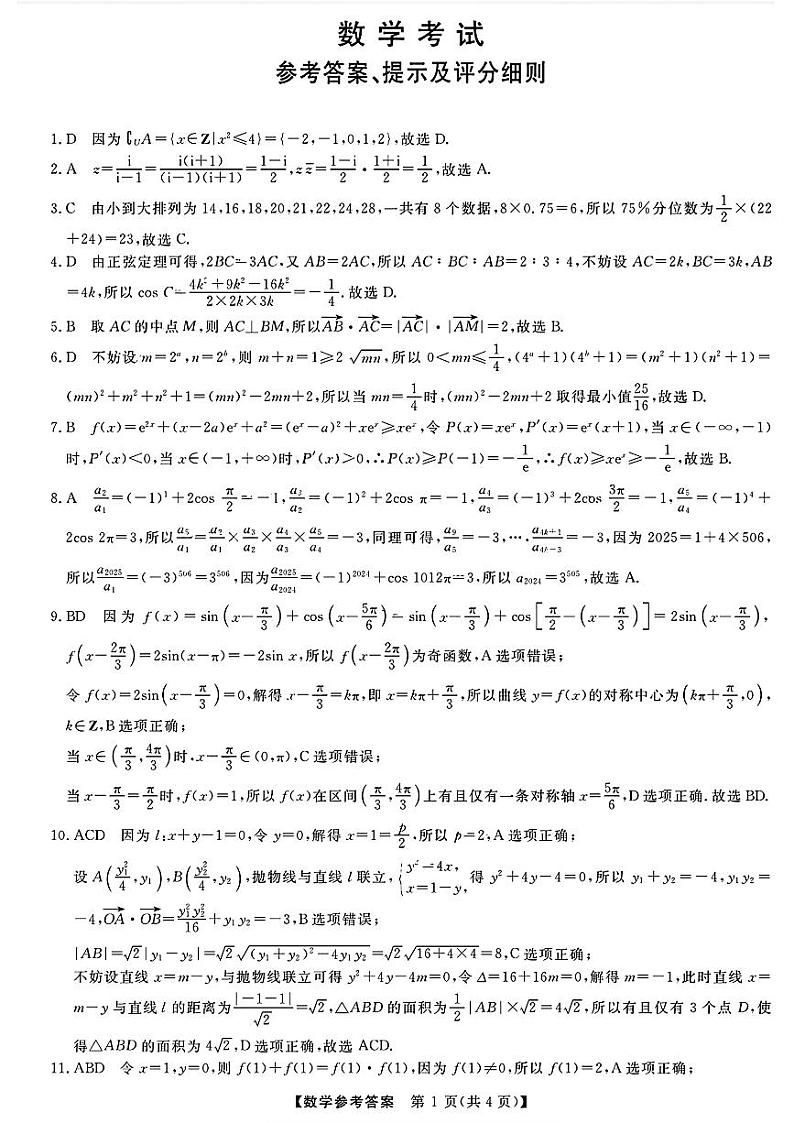 数学考试
参考答案、提示及评分细则
1. D 因为∁UA={x∈Z|x²≤4}={-2,-1,0,1,2},故选 D.
2. A z=i/(i-1)=i(i+1)/((i-1)(i+1))=(1-i)/2,zz̄=(1-i)/2·(1+i)/2=1/2,故选 A.
3. C 由小到大排列为 14,16,18,20,21,22,24,28,一共有 8 个数据,8×0.75=6,所以 75%分位数为1/2×(22
+24)=23,故选 C.
4. D 由正弦定理可得,2BC=3AC,又 AB=2AC,所以 AC∶BC∶AB=2∶3∶4,不妨设 AC=2k,BC=3k,AB
=4k,所以 cos C=(4k²+9k²-16k²)/(2×2k×3k)=-1/4.故选 D.
5. B 取 AC 的中点 M,则 AC⊥BM,所以AB→·AC→=|AC→|·|AM→|=2,故选 B.
6. D 不妨设 m=2ᵃ,n=2ᵇ,则 m+n=1≥2√(mn),所以 0<mn≤1/4,(4ᵃ+1)(4ᵇ+1)=(m²+1)(n²+1)=
(mn)²+m²+n²+1=(mn)²-2mn+2,所以当 mn=1/4时,(mn)²-2mn+2 取得最小值25/16,故选 D.
7. B f(x)=e²ˣ+(x-2a)eˣ+a²=(eˣ-a)²+xeˣ≥xeˣ,令 P(x)=xeˣ,P′(x)=eˣ(x+1),当 x∈(-∞,-1)
时,P′(x)<0,当 x∈(-1,+∞)时,P′(x)>0,∴P(x)≥P(-1)=-1/e,∴f(x)≥xeˣ≥-1/e,故选 B.
8. A a₂/a₁=(-1)¹+2cos π/2=-1,a₃/a₂=(-1)²+2cos π=-1,a₄/a₃=(-1)³+2cos 3π/2=-1,a₅/a₄=(-1)⁴+
2cos 2π=3,所以a₅/a₁=a₂/a₁×a₃/a₂×a₄/a₃×a₅/a₄=-3,同理可得,a₉/a₅=-3,…,a₄ₖ₊₁/a₄ₖ₋₃=-3,因为 2025=1+4×506,
所以a₂₀₂₅/a₁=(-3)⁵⁰⁶=3⁵⁰⁶,因为a₂₀₂₅/a₂₀₂₄=(-1)²⁰²⁴+cos 1012π=3,所以 a₂₀₂₄=3⁵⁰⁵,故选 A.
9. BD 因为 f(x)=sin(x-π/3)+cos(x-5π/6)=sin(x-π/3)+cos[π/2-(x-π/3)]=2sin(x-π/3),
f(x-2π/3)=2sin(x-π)=-2sin x,所以 f(x-2π/3)为奇函数,A 选项错误;
令 f(x)=2sin(x-π/3)=0,解得 x-π/3=kπ,即 x=kπ+π/3,所以曲线 y=f(x)的对称中心为(kπ+π/3,0),
k∈Z,B 选项正确;
当 x∈(π/3,4π/3)时,x-π/3∈(0,π),C 选项错误;
当 x-π/3=π/2时,f(x)=1,所以 f(x)在区间(π/3,4π/3)上有且仅有一条对称轴 x=5π/6,D 选项正确.故选 BD.
10. ACD 因为 l:x+y-1=0,令 y=0,解得 x=1=p/2,所以 p=2,A 选项正确;
设 A(y₁²/4,y₁),B(y₂²/4,y₂),抛物线与直线 l 联立,{y²=4x, x=1-y,得 y²+4y-4=0,所以 y₁+y₂=-4,y₁y₂=
-4,OA→·OB→=y₁²y₂²/16+y₁y₂=-3,B 选项错误;
|AB|=√2|y₁-y₂|=√2√((y₁+y₂)²-4y₁y₂)=√2√(16+4×4)=8,C 选项正确;
不妨设直线 x=m-y,与抛物线联立可得 y²+4y-4m=0,令 Δ=16+16m=0,解得 m=-1,此时直线 x=
m-y 与直线 l 的距离为|-1-1|/√2=√2,△ABD 的面积为1/2|AB|×√2=4√2,所以有且仅有 3 个点 D,使
得△ABD 的面积为 4√2,D 选项正确,故选 ACD.
11. ABD 令 x=1,y=0,则 f(1)+f(1)=f(1)·f(1),因为 f(1)≠0,所以 f(1)=2,A 选项正确;
【数学参考答案 第 1 页(共 4 页)】